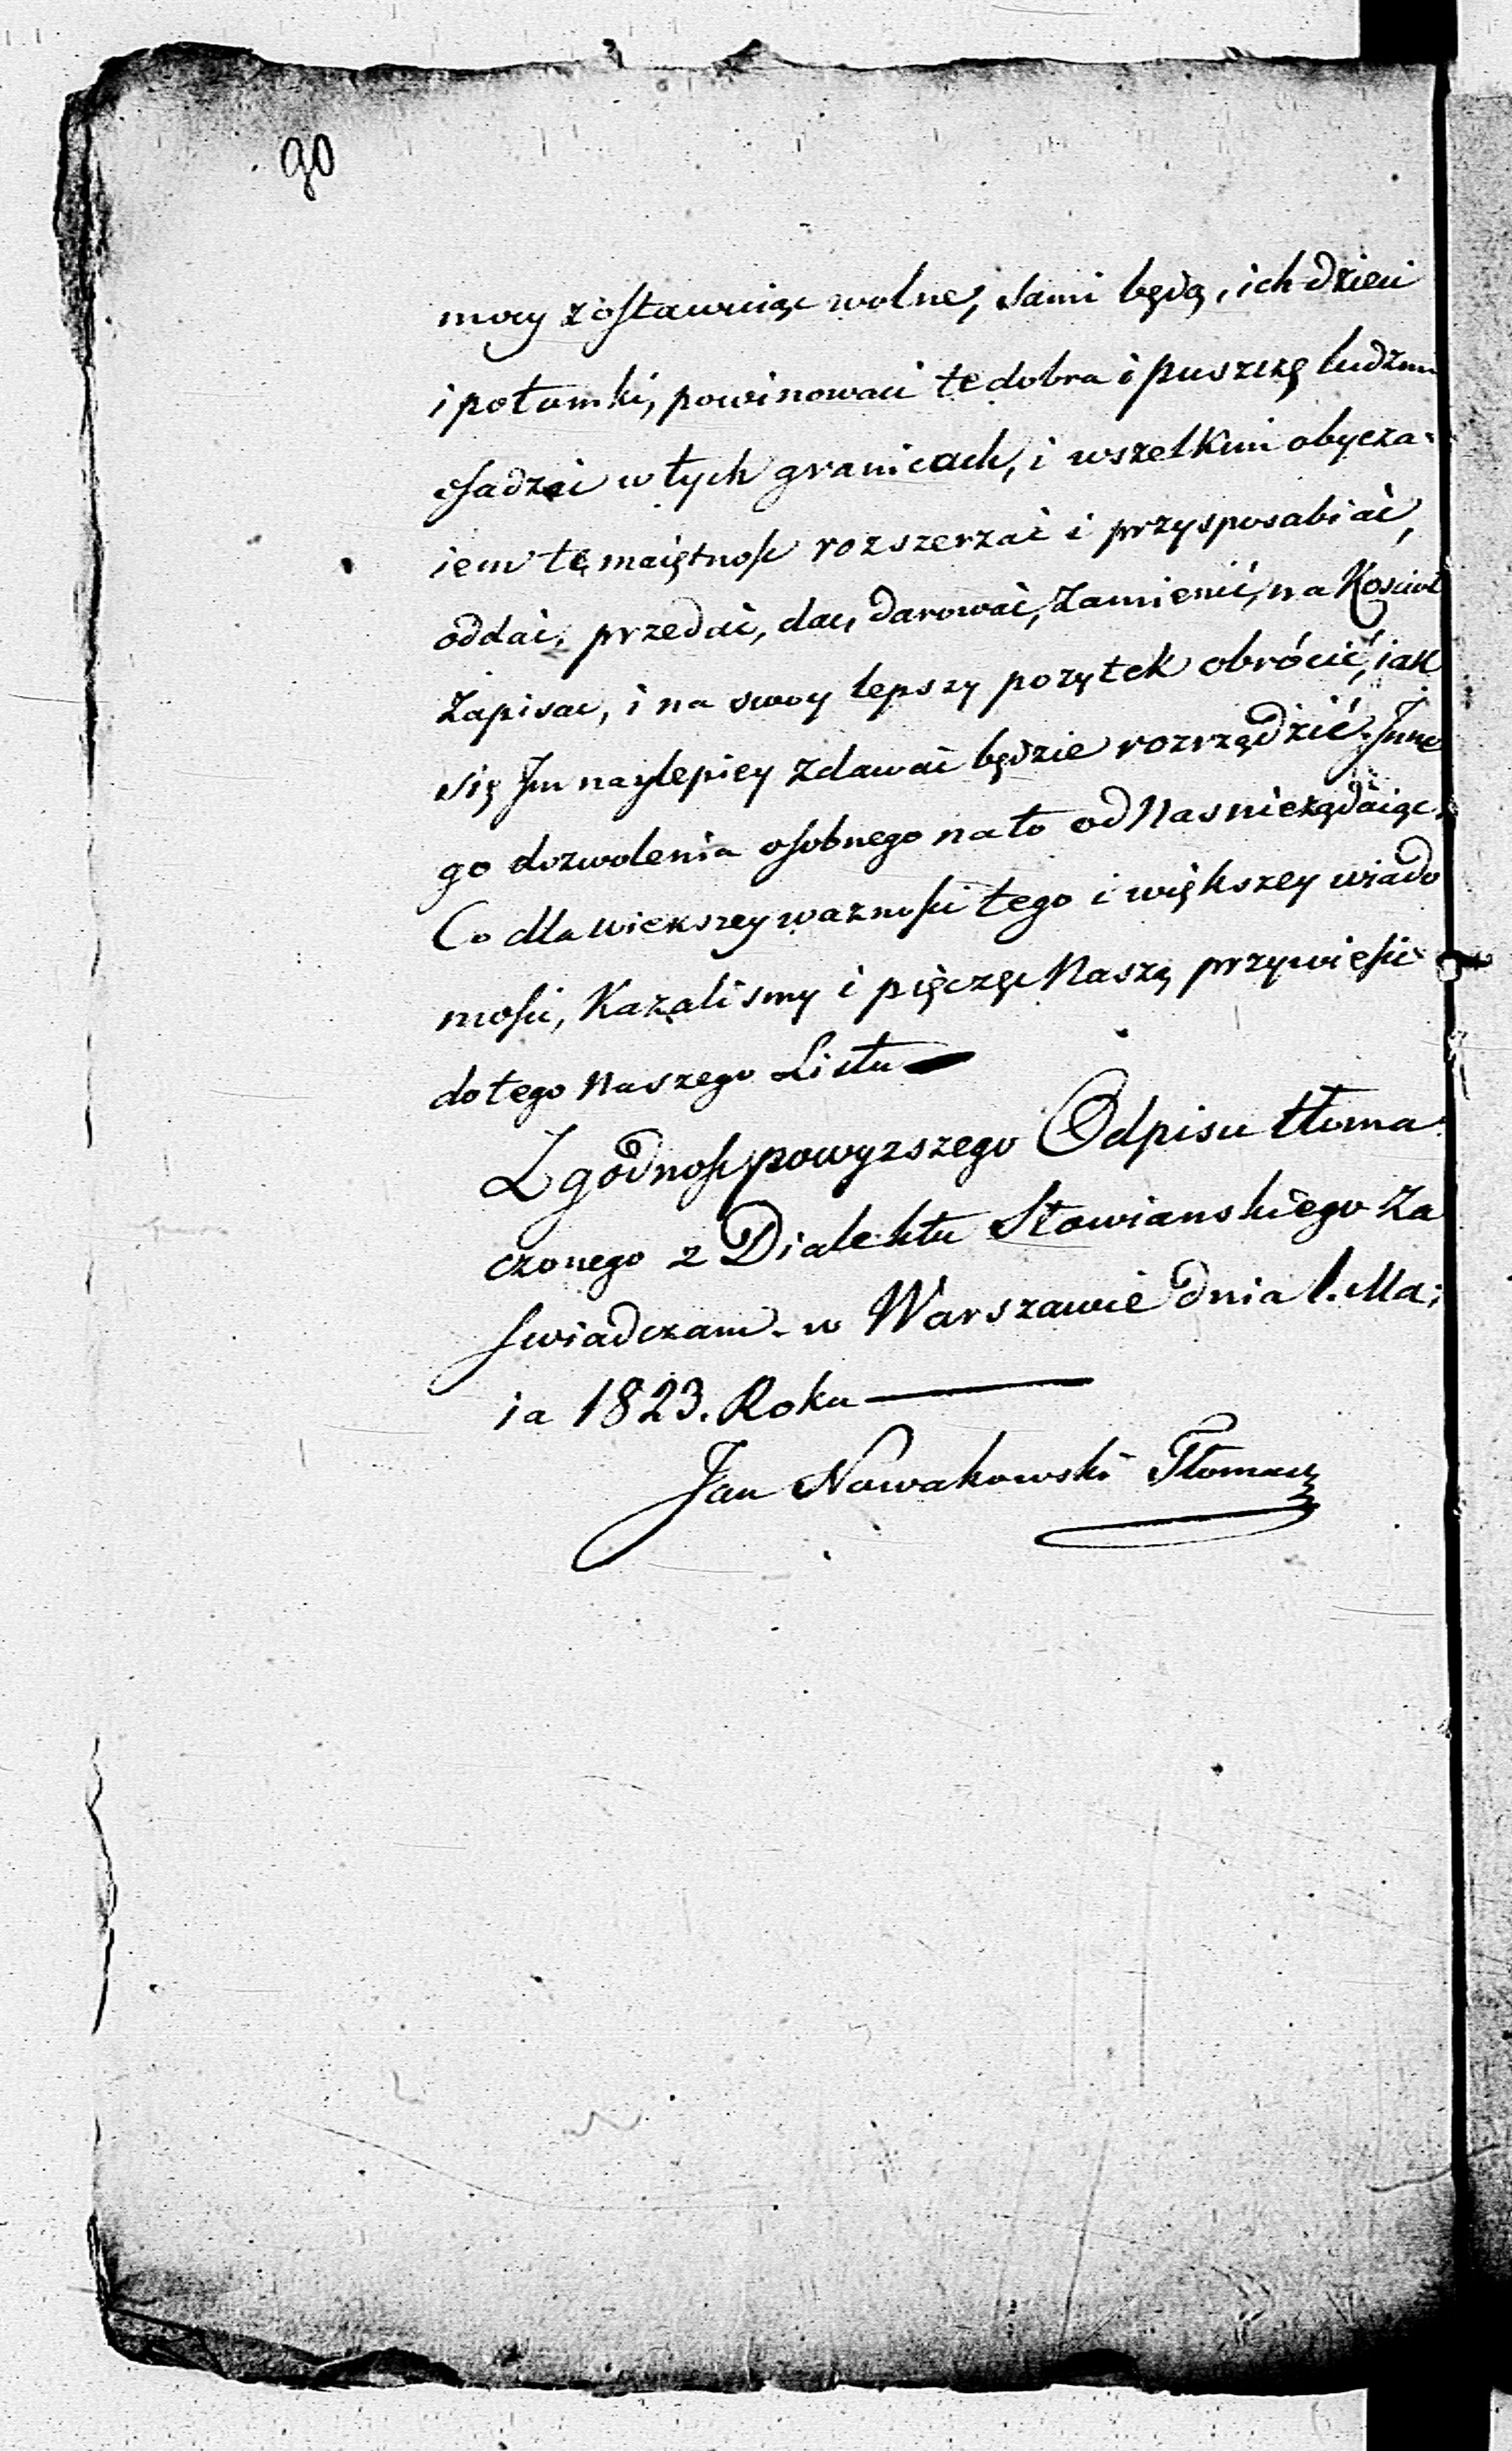 90
mocy zostawuiąc wolne, sami będą, ich dzieci
i potomki, powinowaci te dobra i puszczę ludzmi
osadzać w tych granicach, i wszelkim obycza-
iem tę maiętnosc rozszerzać i przysposabiać,
oddać, przedać, dac, darować, Zamienić, na Kościoł
Zapisac, i na swoy lepszy pozytek obrócić, iak
się Jm naylepiey zdawać będzie rozrządzić. Inne
go dozwolenia osobnego na to od Nas nieżądaiąc.
Co dla wiekszey waznosci tego i większey wiado
mosci, Kazalismy i pięczęc Naszą przywiesic
do tego Naszego Listu
Zgodnosc powyzszego Odpisu tłoma
czonego z Dialektu Słowianskiego Za
swiadczam. w Warszawie dnia 1. Ma-
ia 1823. Roku
Jan Nowakowski Tłomacz